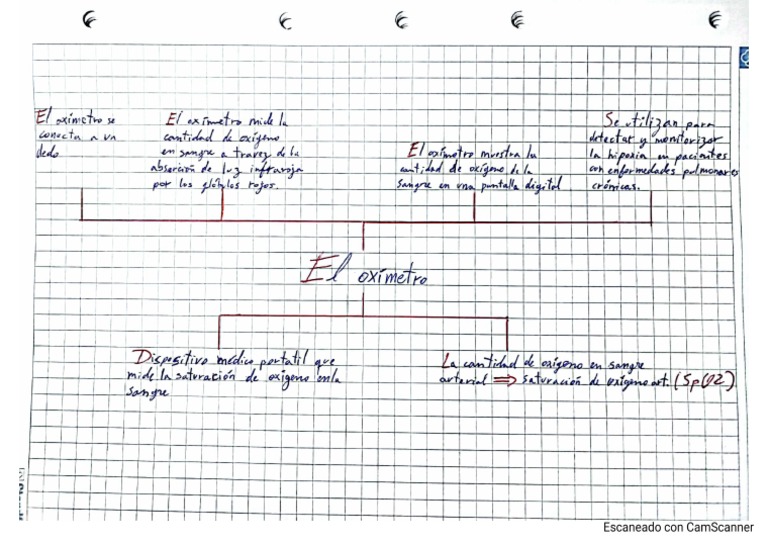 El oxímetro se
conecta a un
dedo
El oxímetro mide la
cantidad de oxígeno
en sangre a travez de la
absorción de luz infraroja
por los glóbulos rojos.
El oxímetro muestra la
cantidad de oxígeno de la
sangre en una pantalla digital
Se utilizan para
detectar y monitorizar
la hipoxia en pacientes
con enfermedades pulmonares
crónicas.
El oxímetro
Dispositivo médico portatil que
mide la saturación de oxígeno en la
sangre
La cantidad de oxígeno en sangre
arterial ⇒ saturación de oxígeno art. (SpO2)
Escaneado con CamScanner